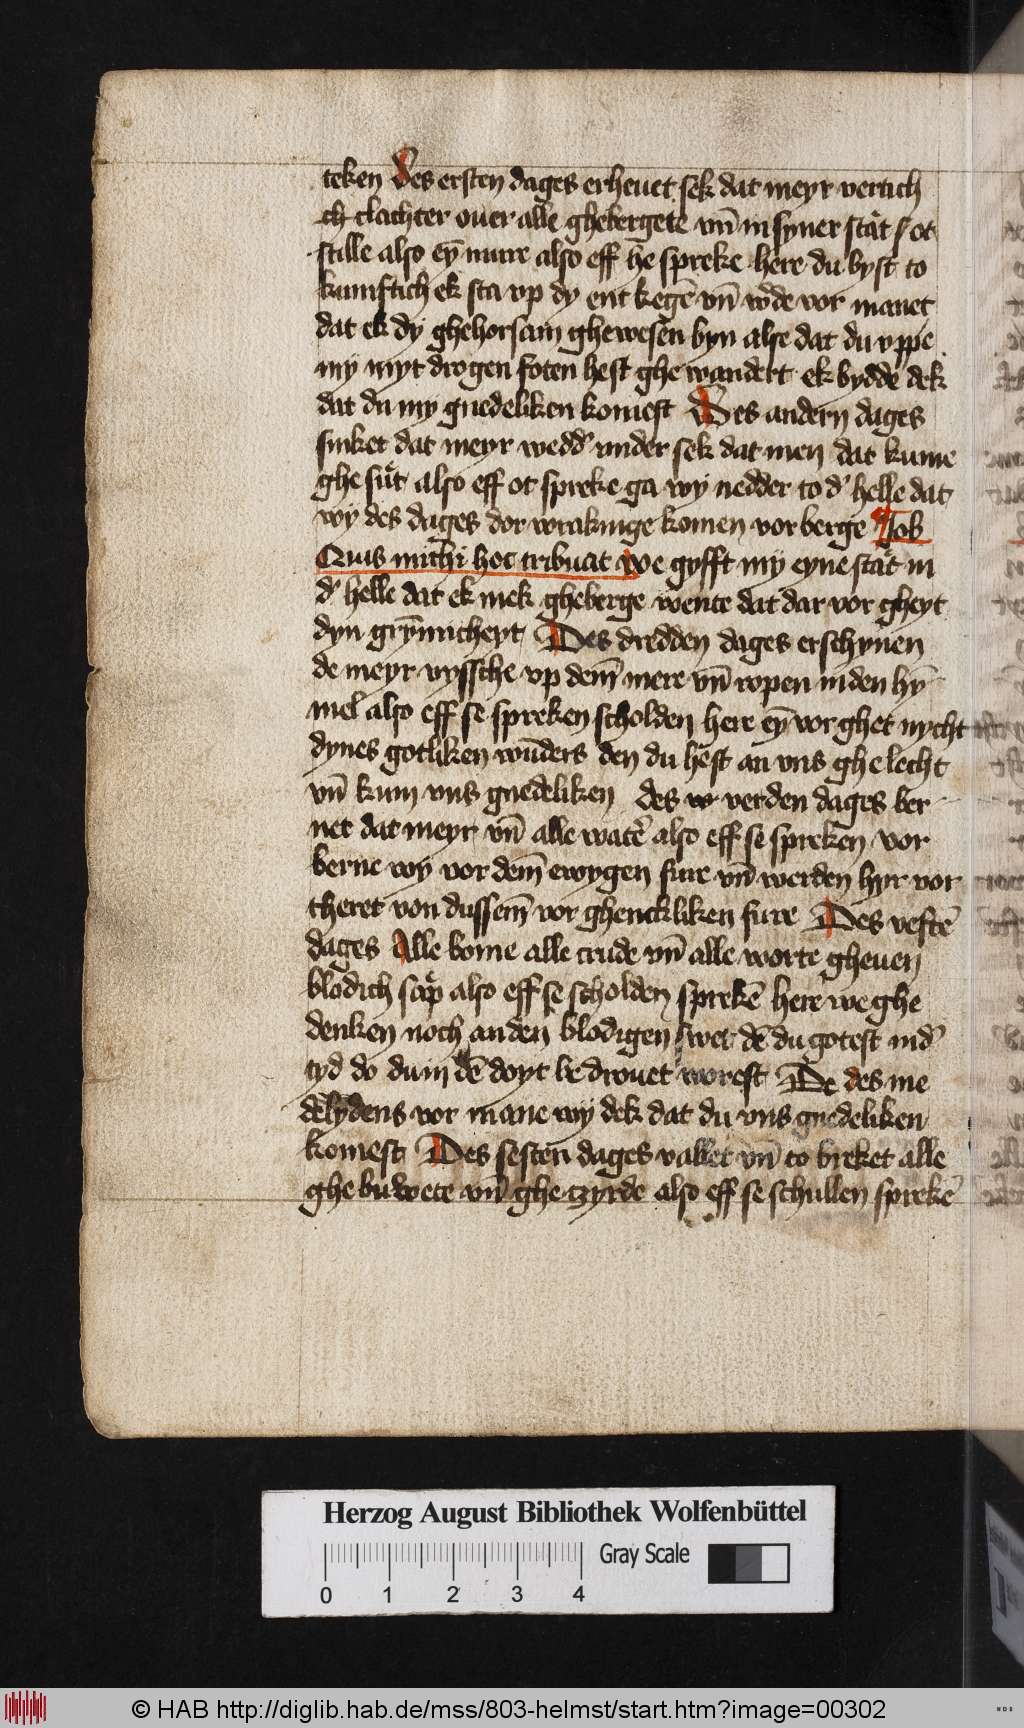 teken Des ersten dages erheuet sek dat meyr vertich
ch clachter ouer alle ghebergete vn̄ in syner stat s ot
stille also eȳ mure also eff he spreke here du byst to
kumftich ek sta vp dy ent kegē vn̄ w̄de vor manet
dat ek dy ghehorsam ghewesen byn alse dat du vppe
my myt drogen foten hest ghe wandert ek bydde dek
dat du my gnedeliken komest Des andern dages
sinket dat meyr wedd' vnder sek dat men dat kume
ghe sut also eff ot spreke ga wy nedder to d' helle dat
wy des dages dor wrakinge komen vor berge Job
Quis michi hoc tribuat we gyfft my eyne stat in
d' helle dat ek mek gheberge wente dat dar vor gheyt
dyn grȳmicheyt Des dredden dages erschynen
de meyr vyssche vp dem̄ mere vn̄ ropen in den hȳ
mel also eff se spreken scholden here eȳ vor ghet nycht
dynes gotliken wūders den du hest an vns ghe lecht
vn̄ kum vns gnedeliken des verden dages ber
net dat meyr vn̄ alle wat' also eff se spreken vor
berne wy vor dem̄ ewygen fure vn̄ werden hyr vor
theret von dussem̄ vor ghenckliken fure Des veftē
dages Alle bome alle crude vn̄ alle worte gheuen
blodich sap also eff se scholden sprekē here we ghe
denken noch an den blodigen swet dē du gotest in d'
tyd do du in dē doyt be drouet worest De des me
delydens vor mane wy dek dat du vns gnedeliken
komest Des sesten dages vallet vn̄ to breket alle
ghe buwete vn̄ ghe tzyrde also eff se schullen sprekē
Herzog August Bibliothek Wolfenbüttel
Gray Scale
0 1 2 3 4
© HAB http://diglib.hab.de/mss/803-helmst/start.htm?image=00302